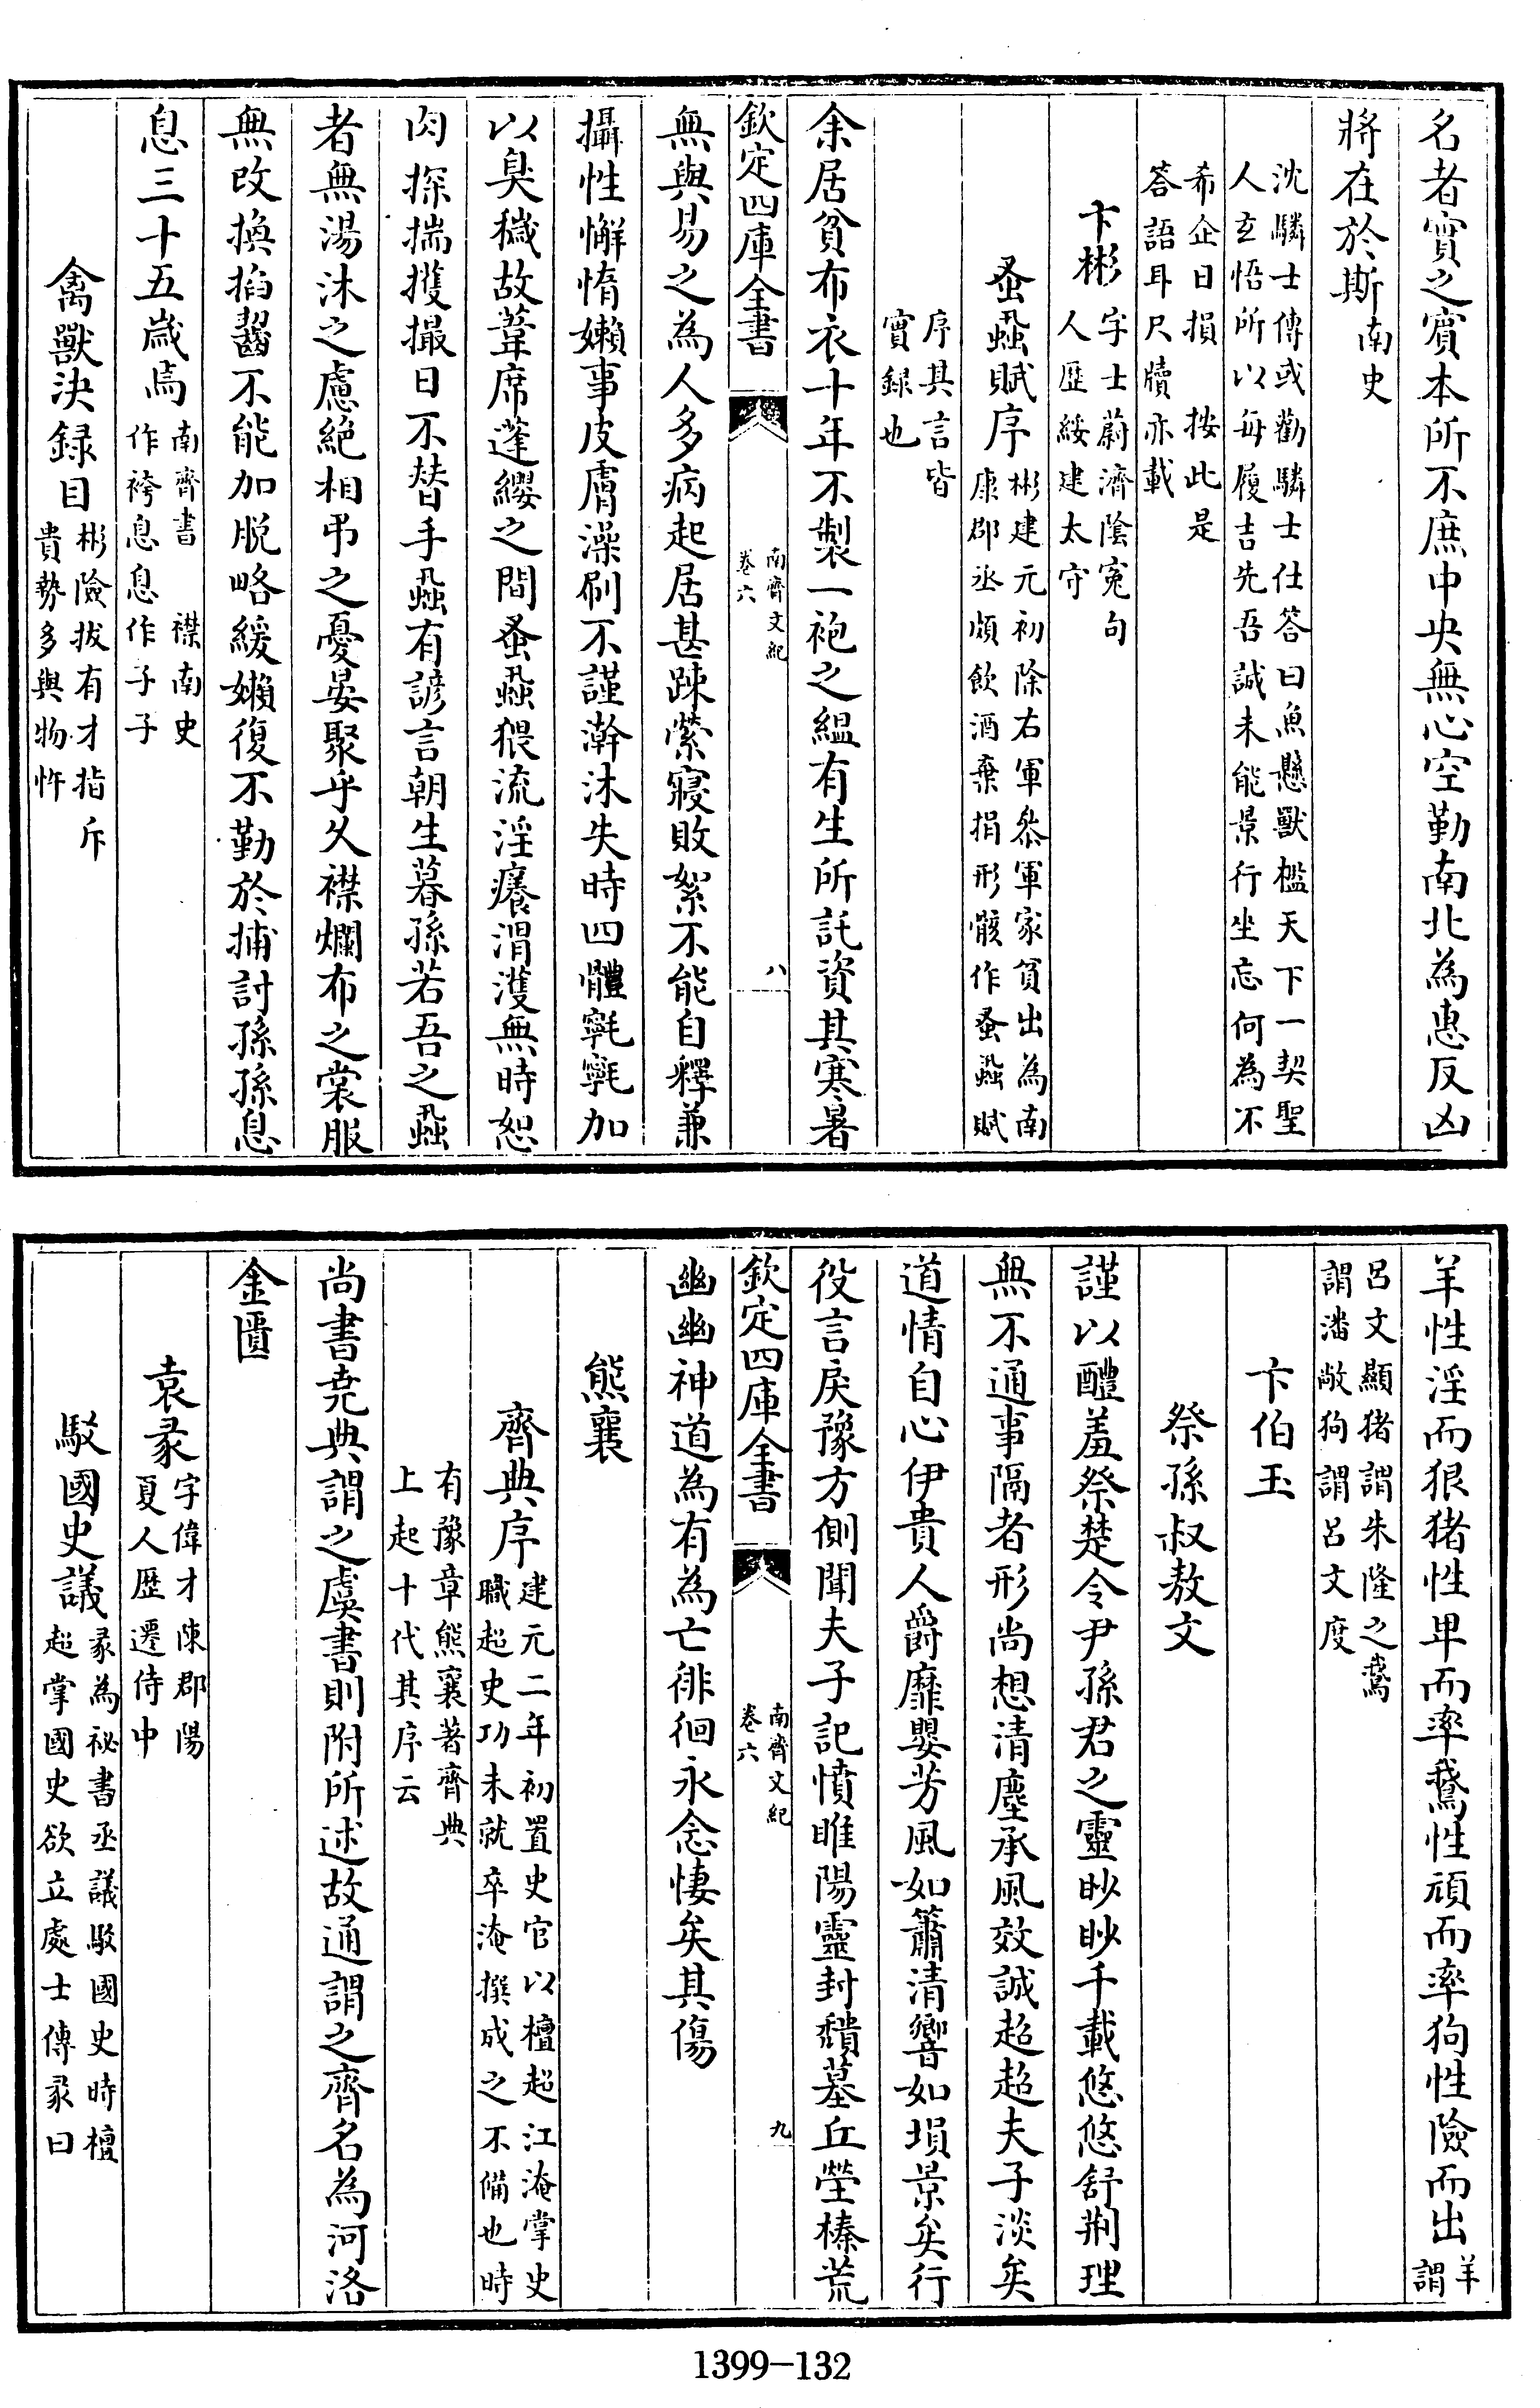 名者實之賓本所不庶中央無心空勤南北為惠反凶
將在於斯南史
沈驎士傳或勸驎士仕答曰魚懸獸檻天下一契聖
人玄悟所以每履吉先吾誠未能景行坐忘何為不
希企日損 按此是
答語耳尺牘亦載
卞彬字士蔚濟陰寃句
人歴綏建太守
蚤蝨賦序彬建元初除右軍叅軍家貧出為南
康郡丞頗飲酒棄捐形骸作蚤蝨賦
序其言皆
實録也
余居貧布衣十年不製一袍之緼有生所託資其寒暑
欽定四庫全書
南齊文紀
卷六
八
無與易之為人多病起居甚踈縈寢敗絮不能自釋兼
攝性懈惰嬾事皮膚澡刷不謹澣沐失時四體𣯶𣯶加
以臭穢故葦席蓬纓之間蚤蝨猥流淫癢渭濩無時恕
肉探揣擭撮日不替手蝨有諺言朝生暮孫若吾之蝨
者無湯沐之慮絶相弔之憂晏聚乎久襟爛布之裳服
無改換掐齧不能加脱略緩嬾復不勤於捕討孫孫息
息三十五歲焉南齊書 襟南史
作袴息息作子子
禽獸決録目彬險拔有才指斥
貴勢多與物忤
羊性淫而狠猪性卑而率鵞性頑而率狗性險而出羊
謂
呂文顯猪謂朱隆之鵞
謂潘敞狗謂呂文度
卞伯玉
祭孫叔敖文
謹以醴羞祭楚令尹孫君之靈眇眇千載悠悠舒荆理
無不通事隔者形尚想清塵承風效誠超超夫子淡矣
道情自心伊貴人爵靡嬰芳風如簫清響如塤景矣行
役言戾豫方側聞夫子記憤睢陽靈封頽墓丘塋榛荒
欽定四庫全書
南齊文紀
卷六
九
幽幽神道為有為亡徘徊永念悽矣其傷
熊襄
齊典序建元二年初置史官以檀超江淹掌史
職超史功未就卒淹撰成之不備也時
有豫章熊襄著齊典
上起十代其序云
尚書堯典謂之虞書則附所述故通謂之齊名為河洛
金匱
袁彖字偉才陳郡陽
夏人歴遷侍中
駁國史議彖為祕書丞議駁國史時檀
超掌國史欲立處士傳彖曰
1399-132